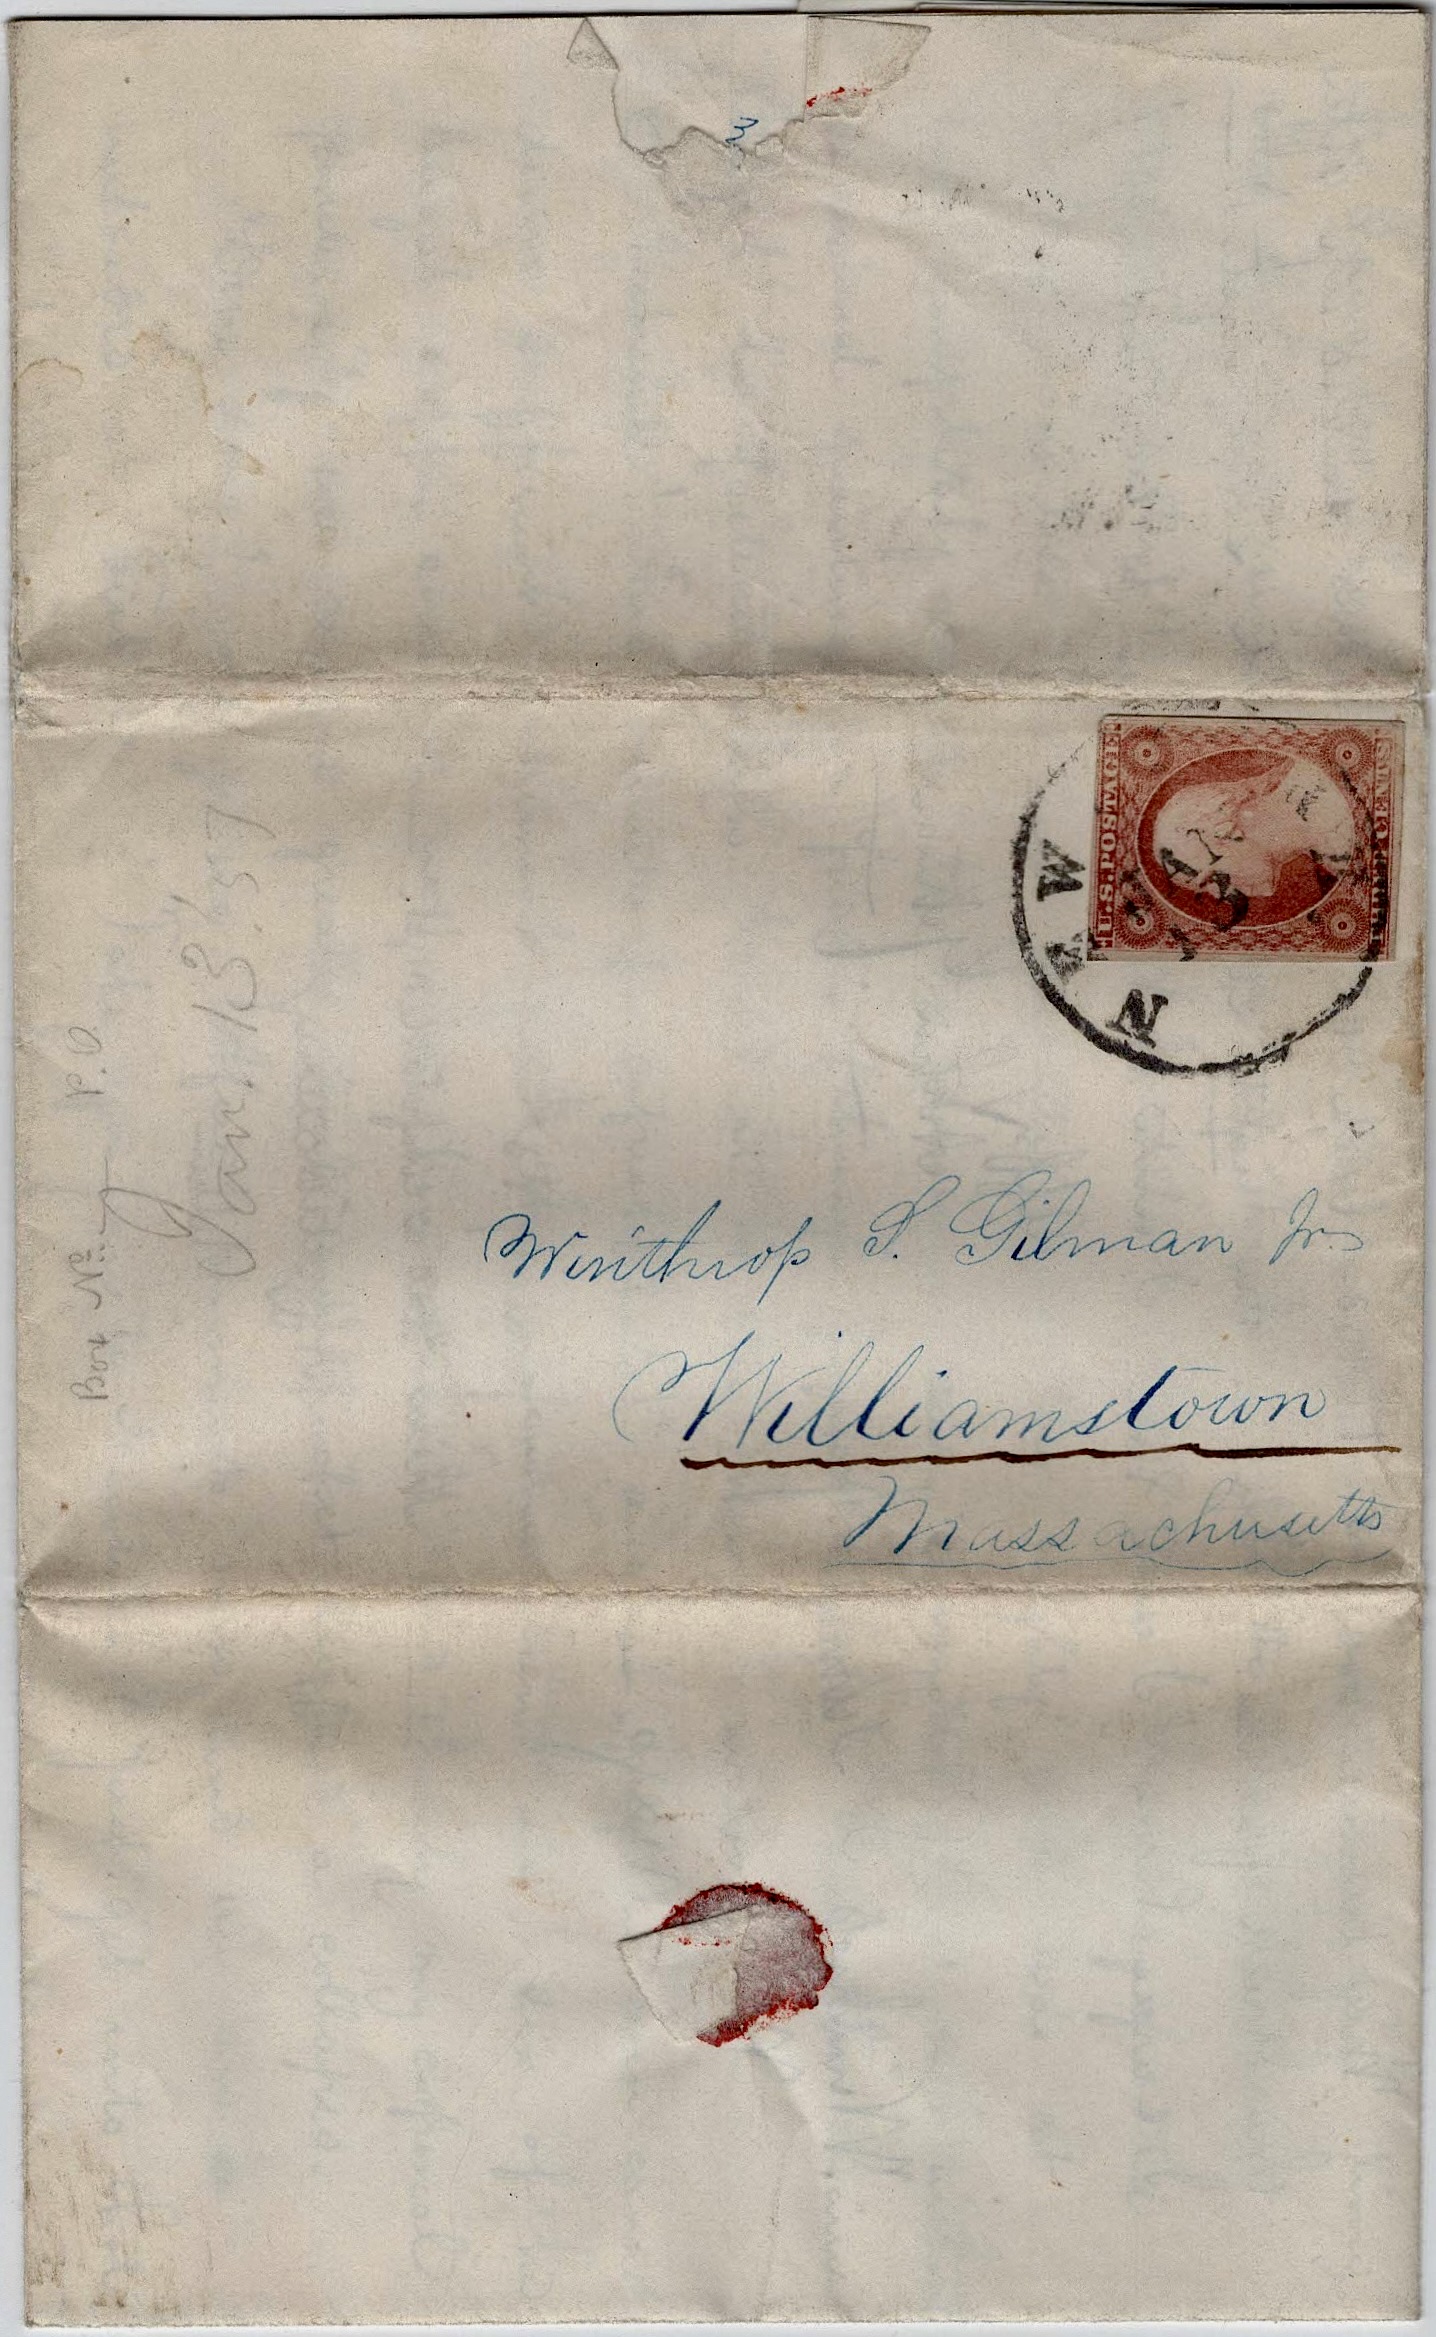 3
U.S. POSTAGE
THREE CENTS
NEW
JAN
13
Winthrop S. Gilman Jr.
Williamstown
Massachusetts
Jan. 13. '57
Box No. 7 P.O.